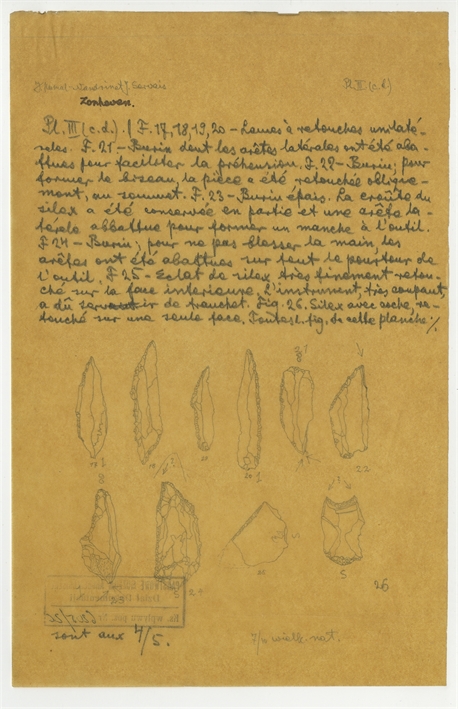 Pl. III (c.d)
Zonhoven.
Pl. III (c.d.) / F. 17, 18, 19, 20 – Lames à retouches unilaté-
rales. F. 21 – Burin dont les arêtes latérales ont été aba-
ttues pour faciliter la préhension. F. 22 – Burin; pour
former le biseau, la pièce a été retouchée oblique-
ment, au sommet. F. 23 – Burin épais. La croûte du
silex a été conservée en partie et une arête la-
térale abbattue pour former un manche à l'outil.
F 24 – Burin; pour ne pas blesser la main, les
arêtes ont été abattues sur tout le pourtour de
l'outil. F. 25 – Eclat de silex très finement retou-
ché sur la face interieure. L'instrument, très coupant,
a dû servir de tranchet. Fig. 26. Silex avec coche, re-
touché sur une seule face. Toutes l. fig. de cette planche ·/.
20
22
24
26
sont aux 4/5.